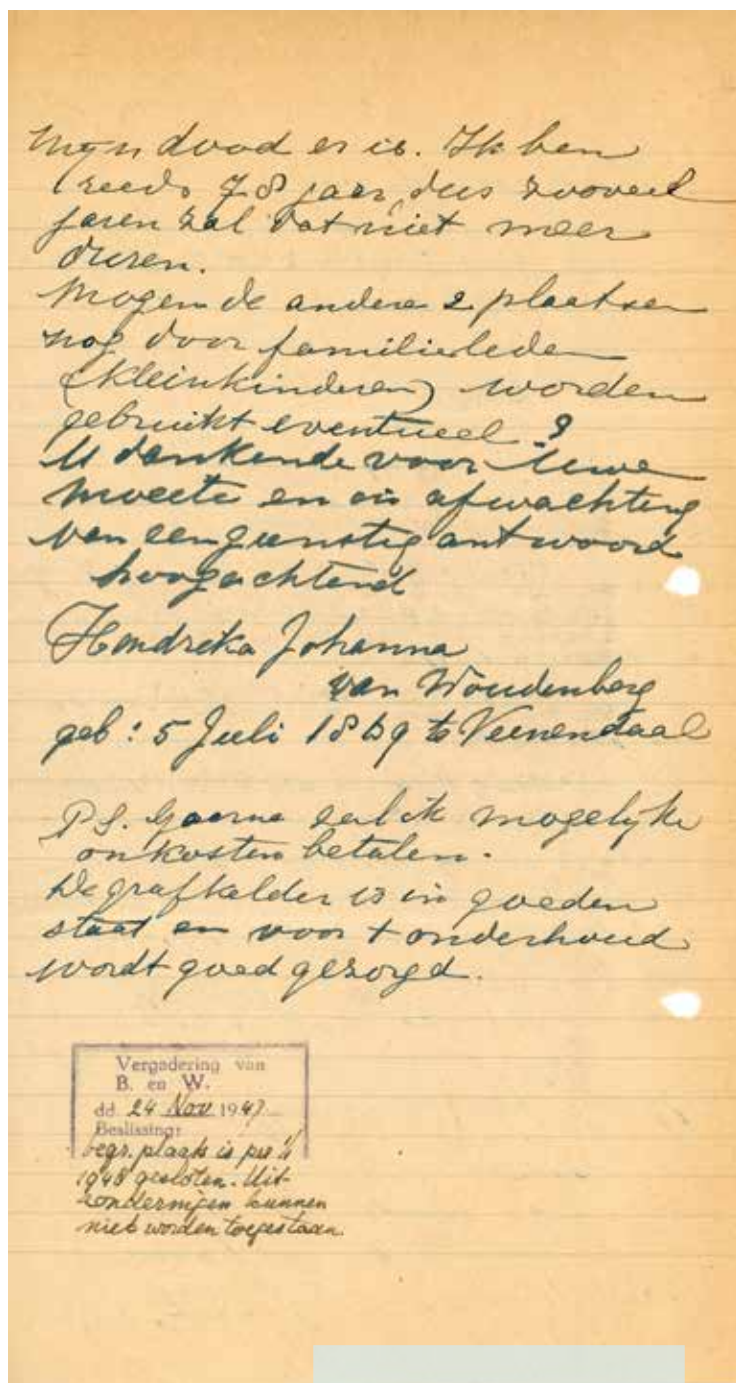 mijn dood er is. Ik ben
reeds 78 jaar, dus zooveel
jaren zal dat niet meer
duren.
Mogen de andere 2 plaatsen
nog door familieleden
(kleinkinderen) worden
gebruikt eventueel?
U dankende voor Uwe
moeite en in afwachting
van een gunstig antwoord
hoogachtend
Hendrika Johanna
van Woudenberg
geb: 5 Juli 1869 te Veenendaal
P.S. Gaarne zal ik mogelijke
onkosten betalen.
De grafkelder is in goeden
staat en voor 't onderhoud
wordt goed gezorgd.
Vergadering van
B. en W.
dd. 24 Nov 1947
Beslissing:
begr. plaats is per 1/1
1948 gesloten. Uit-
zonderingen kunnen
niet worden toegestaan.